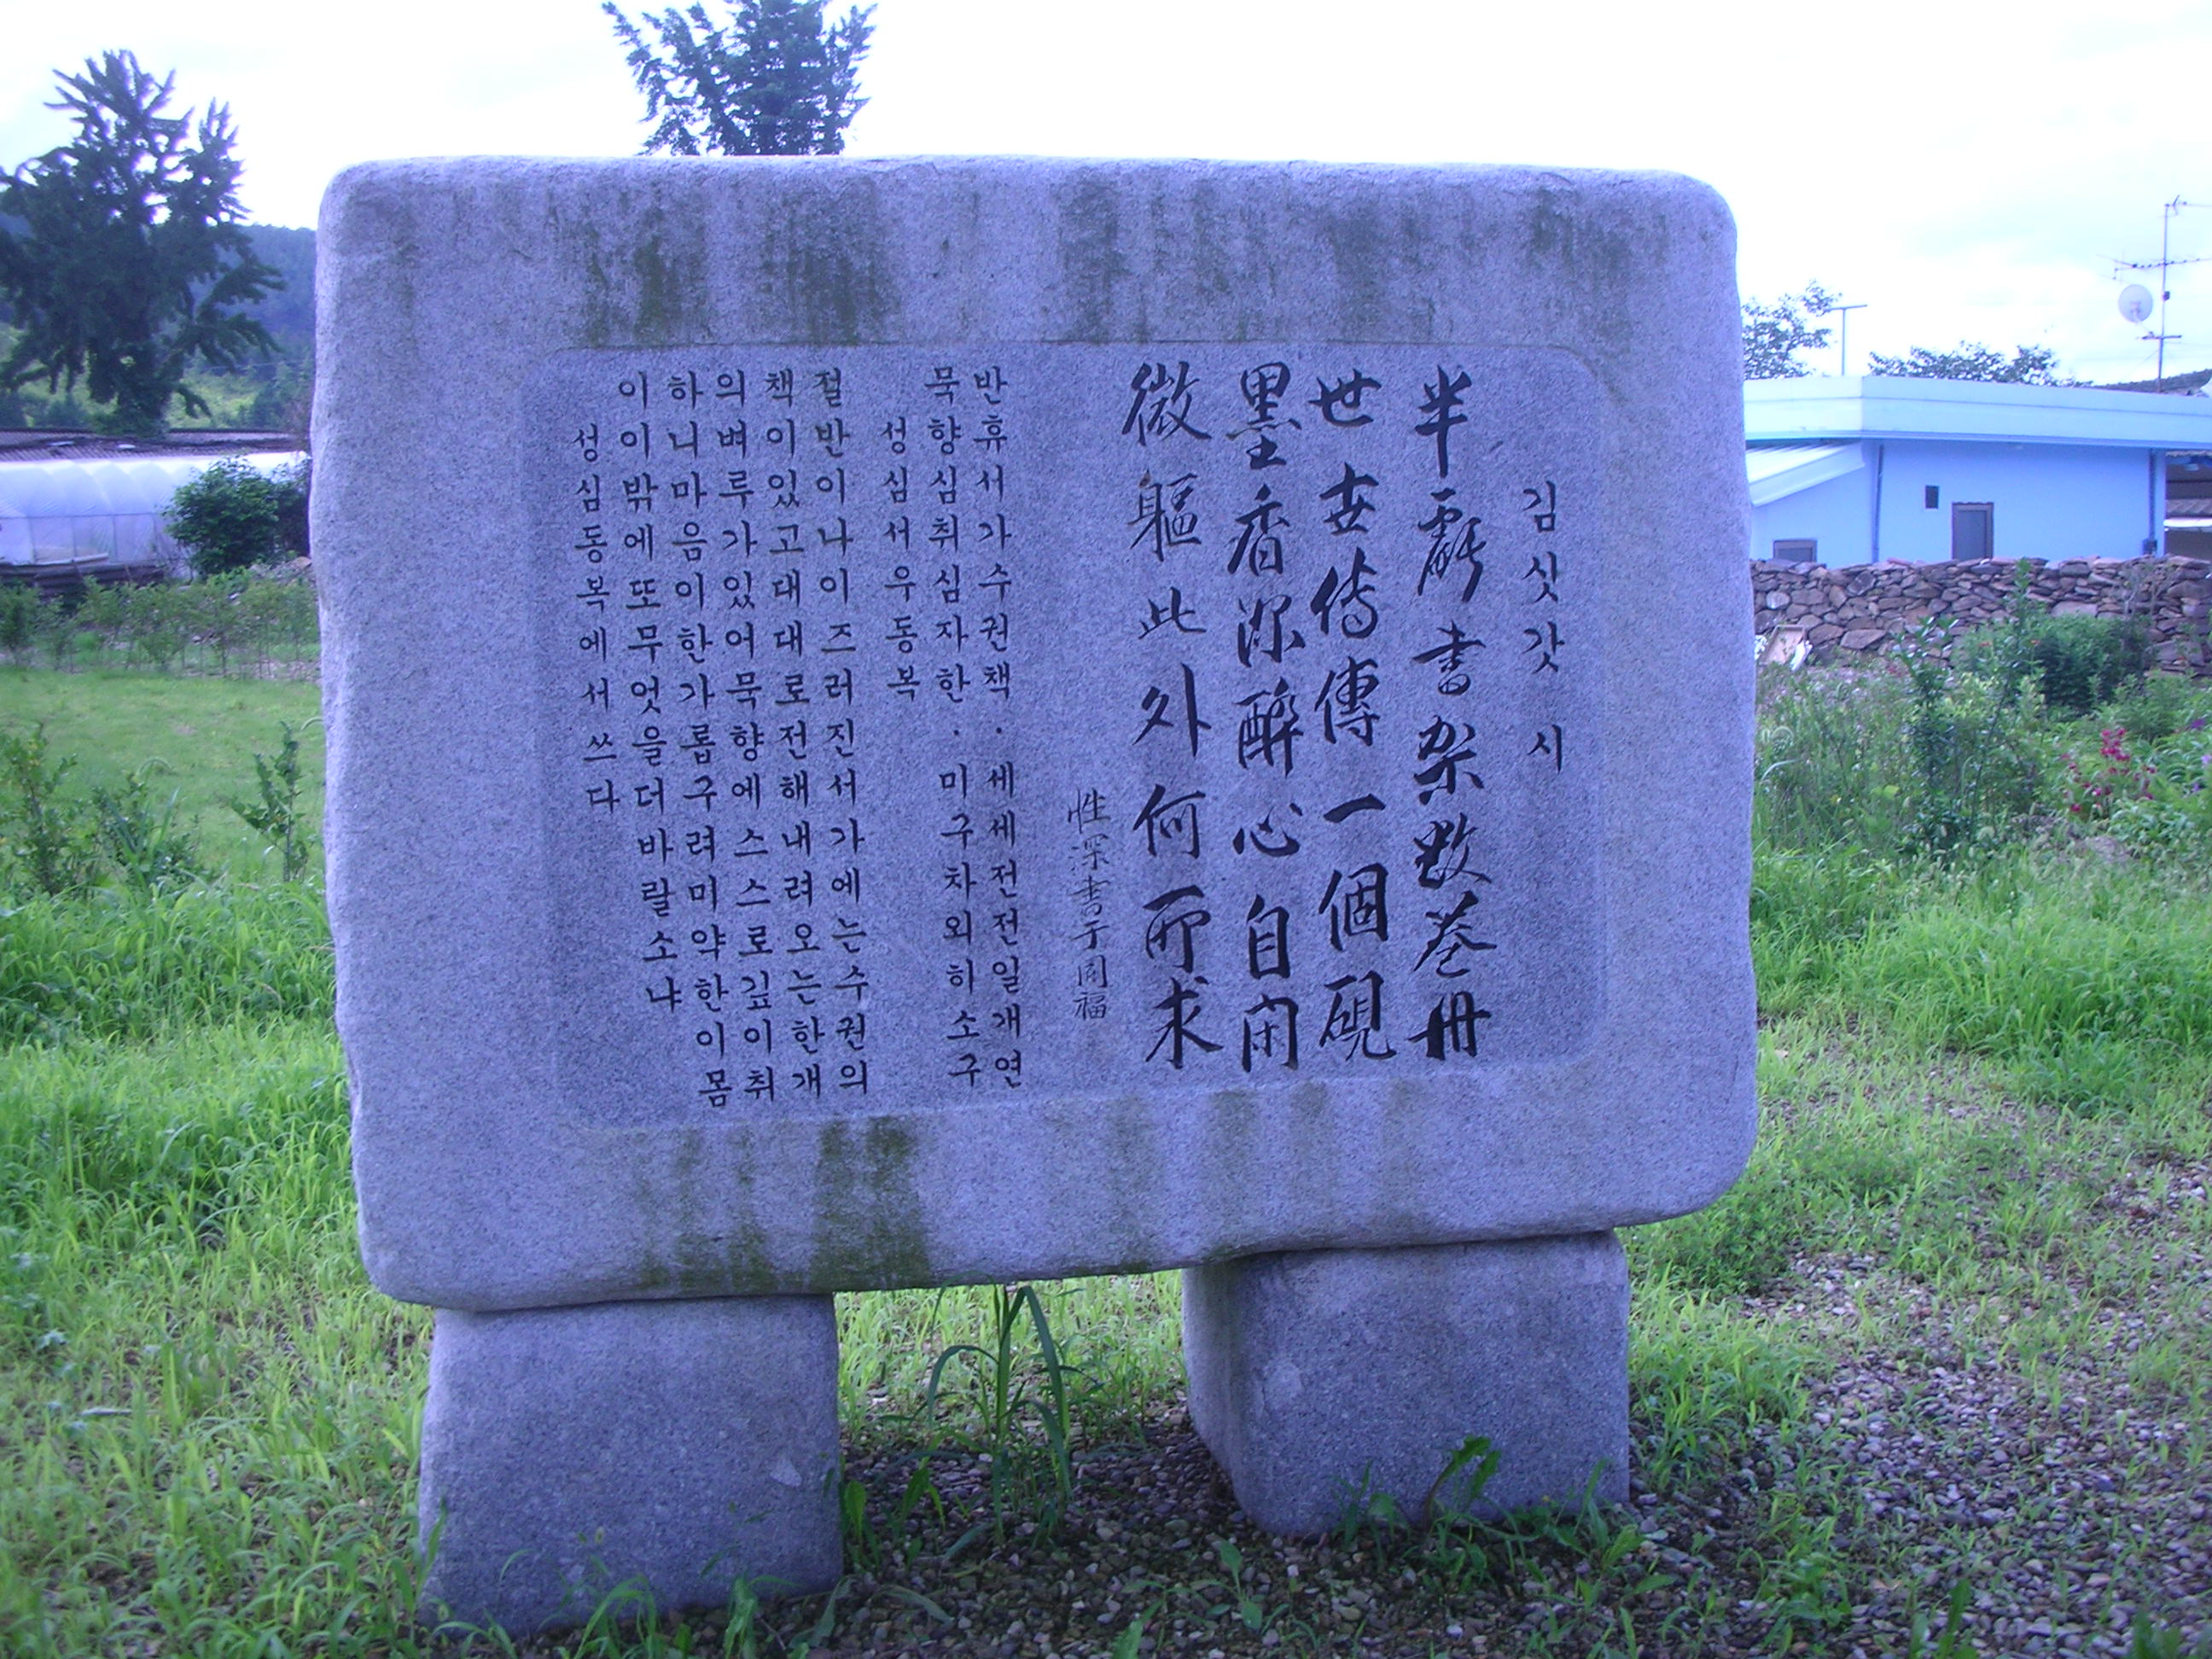 김삿갓 시
半虧書架数卷冊
世世傳傳一個硯
墨香深醉心自閑
微軀此外何所求
性深書于同福
반휴서가수권책·세세전전일개연
묵향심취심자한·미구차외하소구
성심서우동복
절반이나이즈러진서가에는수권의
책이있고대대로전해내려오는한개
의벼루가있어묵향에스스로깊이취
하니마음이한가롭구려미약한이몸
이이밖에또무엇을더바랄소냐
성심동복에서쓰다